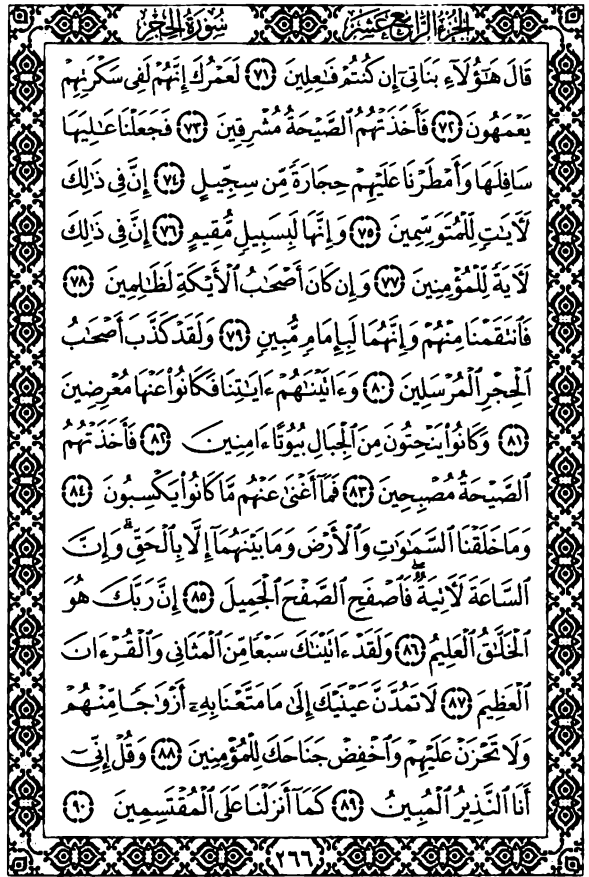 سُورَةُ الحِجْرِ الجُزْءُ الرَّابِعَ عَشَرَ
قَالَ هَٰٓؤُلَآءِ بَنَاتِيٓ إِن كُنتُمْ فَٰعِلِينَ ٧١ لَعَمْرُكَ إِنَّهُمْ لَفِي سَكْرَتِهِمْ
يَعْمَهُونَ ٧٢ فَأَخَذَتْهُمُ ٱلصَّيْحَةُ مُشْرِقِينَ ٧٣ فَجَعَلْنَا عَٰلِيَهَا
سَافِلَهَا وَأَمْطَرْنَا عَلَيْهِمْ حِجَارَةً مِّن سِجِّيلٍ ٧٤ إِنَّ فِي ذَٰلِكَ
لَأٓيَٰتٍ لِّلْمُتَوَسِّمِينَ ٧٥ وَإِنَّهَا لَبِسَبِيلٍ مُّقِيمٍ ٧٦ إِنَّ فِي ذَٰلِكَ
لَأٓيَةً لِّلْمُؤْمِنِينَ ٧٧ وَإِن كَانَ أَصْحَٰبُ ٱلْأَيْكَةِ لَظَٰلِمِينَ ٧٨
فَٱنتَقَمْنَا مِنْهُمْ وَإِنَّهُمَا لَبِإِمَامٍ مُّبِينٍ ٧٩ وَلَقَدْ كَذَّبَ أَصْحَٰبُ
ٱلْحِجْرِ ٱلْمُرْسَلِينَ ٨٠ وَءَاتَيْنَٰهُمْ ءَايَٰتِنَا فَكَانُوا۟ عَنْهَا مُعْرِضِينَ
٨١ وَكَانُوا۟ يَنْحِتُونَ مِنَ ٱلْجِبَالِ بُيُوتًا ءَامِنِينَ ٨٢ فَأَخَذَتْهُمُ
ٱلصَّيْحَةُ مُصْبِحِينَ ٨٣ فَمَآ أَغْنَىٰ عَنْهُم مَّا كَانُوا۟ يَكْسِبُونَ ٨٤
وَمَا خَلَقْنَا ٱلسَّمَٰوَٰتِ وَٱلْأَرْضَ وَمَا بَيْنَهُمَآ إِلَّا بِٱلْحَقِّ ۗ وَإِنَّ
ٱلسَّاعَةَ لَأٓتِيَةٌ ۖ فَٱصْفَحِ ٱلصَّفْحَ ٱلْجَمِيلَ ٨٥ إِنَّ رَبَّكَ هُوَ
ٱلْخَلَّٰقُ ٱلْعَلِيمُ ٨٦ وَلَقَدْ ءَاتَيْنَٰكَ سَبْعًا مِّنَ ٱلْمَثَانِي وَٱلْقُرْءَانَ
ٱلْعَظِيمَ ٨٧ لَا تَمُدَّنَّ عَيْنَيْكَ إِلَىٰ مَا مَتَّعْنَا بِهِۦٓ أَزْوَٰجًا مِّنْهُمْ
وَلَا تَحْزَنْ عَلَيْهِمْ وَٱخْفِضْ جَنَاحَكَ لِلْمُؤْمِنِينَ ٨٨ وَقُلْ إِنِّيٓ
أَنَا ٱلنَّذِيرُ ٱلْمُبِينُ ٨٩ كَمَآ أَنزَلْنَا عَلَى ٱلْمُقْتَسِمِينَ ٩٠
٢٦٦